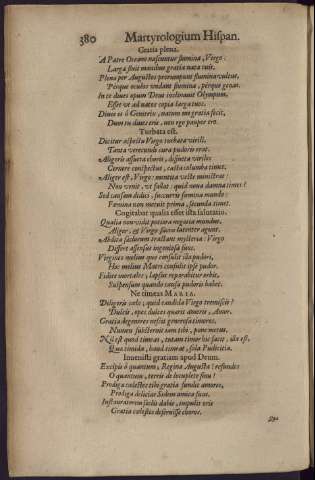 380 Martyrologium Hispan.
Gratia plena.
A Patre Oceani nascuntur flumina, Virgo:
Larga fluit manibus gratia nata tuis.
Plena per Augustos prorumpunt flumina vultus,
Perque oculos undant flumina, perque genas.
In te dives opum Deus inclinavit Olympum,
Esset ut ad natos copia larga tuos.
Dives es ô Genitrix, natum me gratia fecit,
Dum tu dives eris, non ego pauper ero.
Turbata est.
Dicitur aspectu Virgo turbata virili.
Tanta verecundo cura pudoris erat.
Aligeris assueta choris, defueta viriles
Cernere conspectus, casta columba timet.
Aliger est, Virgo: mentita veste ministrat:
Non venit, ut fallat: quid noua damna times?
Sed causam dedit, succurris femina mundo:
Fæmina non metuit prima, secunda timet.
Cogitabat qualis esset ista salutatio.
Qualia non vidit potiora negotia mundus,
Aliger, & Virgo sacra latenter agunt.
Abdita sæclorum tractant mysteria: Virgo
Differt assensus ingeniosa suos.
Virginis melius quo consulit illa pudori,
Hoc melius Matri consulit ipse pudor.
Fidite mortales; lapsus reparabitur orbis,
Suspensum quando causa pudoris habet.
Ne timeas MARIA.
Diligeris cælo; quid candida Virgo tremiscis?
Dulcis, apes dulces quæris amoris, Amor.
Gratia degeneres nescit generosa timores,
Numen substernit tam tibi, pone metus.
Nil est quod timeas, totam timor hos facit, illa est,
Qua timida, haud timeat, sola Pudicitia.
Inuenisti gratiam apud Deum.
Excipis ô quantum, Regina Augusta! refundes
O quantum, terris de locuplete sinu!
Prodiga cælestes tibi gratia fundit amores,
Prodiga delicias Sidem amica suas.
Instauraturam sæclis dabis, impulit oris
Gratia cælestes deseruisse choros.